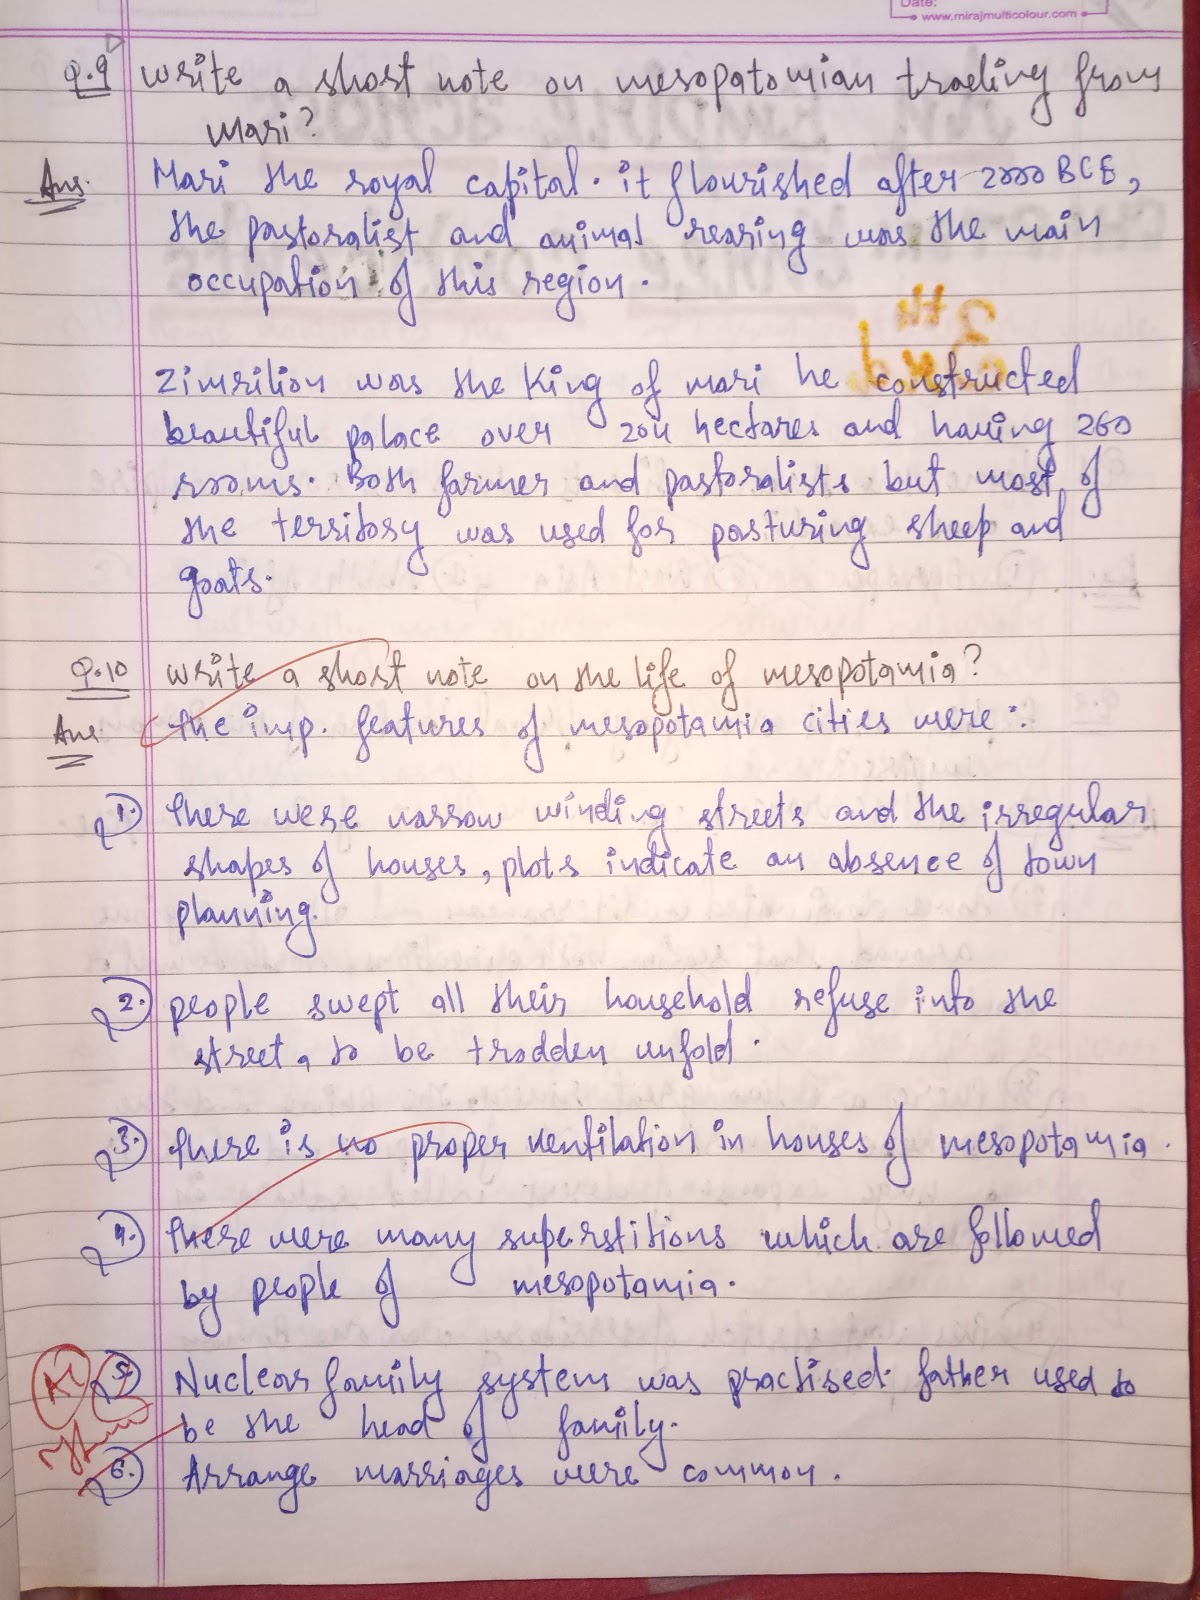 Date:
www.mirajmulticolour.com
Q.9 write a short note on mesopatomian trading from
Mari?
Ans. Mari the royal capital. it flourished after 2000 BCE,
the pastoralist and animal rearing was the main
occupation of this region.
Zimrilion was the King of mari he constructed
beautiful palace over 204 hectares and having 260
rooms. Both farmer and pastoralists but most of
the territory was used for pasturing sheep and
goats.
Q.10 write a short note on the life of mesopotamia?
Ans. the imp. features of mesopotamia cities were :.
1. there were narrow winding streets and the irregular
shapes of houses, plots indicate an absence of town
planning.
2. people swept all their household refuse into the
street, to be trodden unfold.
3. there is no proper ventilation in houses of mesopotamia.
4. there were many superstitions which are followed
by people of mesopotamia.
5. Nuclear family system was practised. father used to
be the head of family.
6. Arrange marriages were common.